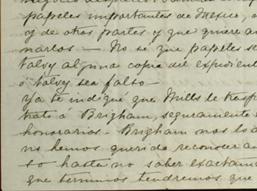 papeles importantes de Mexico, a
y de otras partes y que quiere a
narlos — No sé que papeles se
talvez alguna copia del expedient
ó talvez sea falto
Ya te indiqué que Mills te traspa
trató á Brigham, seguramente
honorarios — Brigham nos lo a
no hemos querido reconocer a
to hasta no saber exactame
que terminos tendremos que